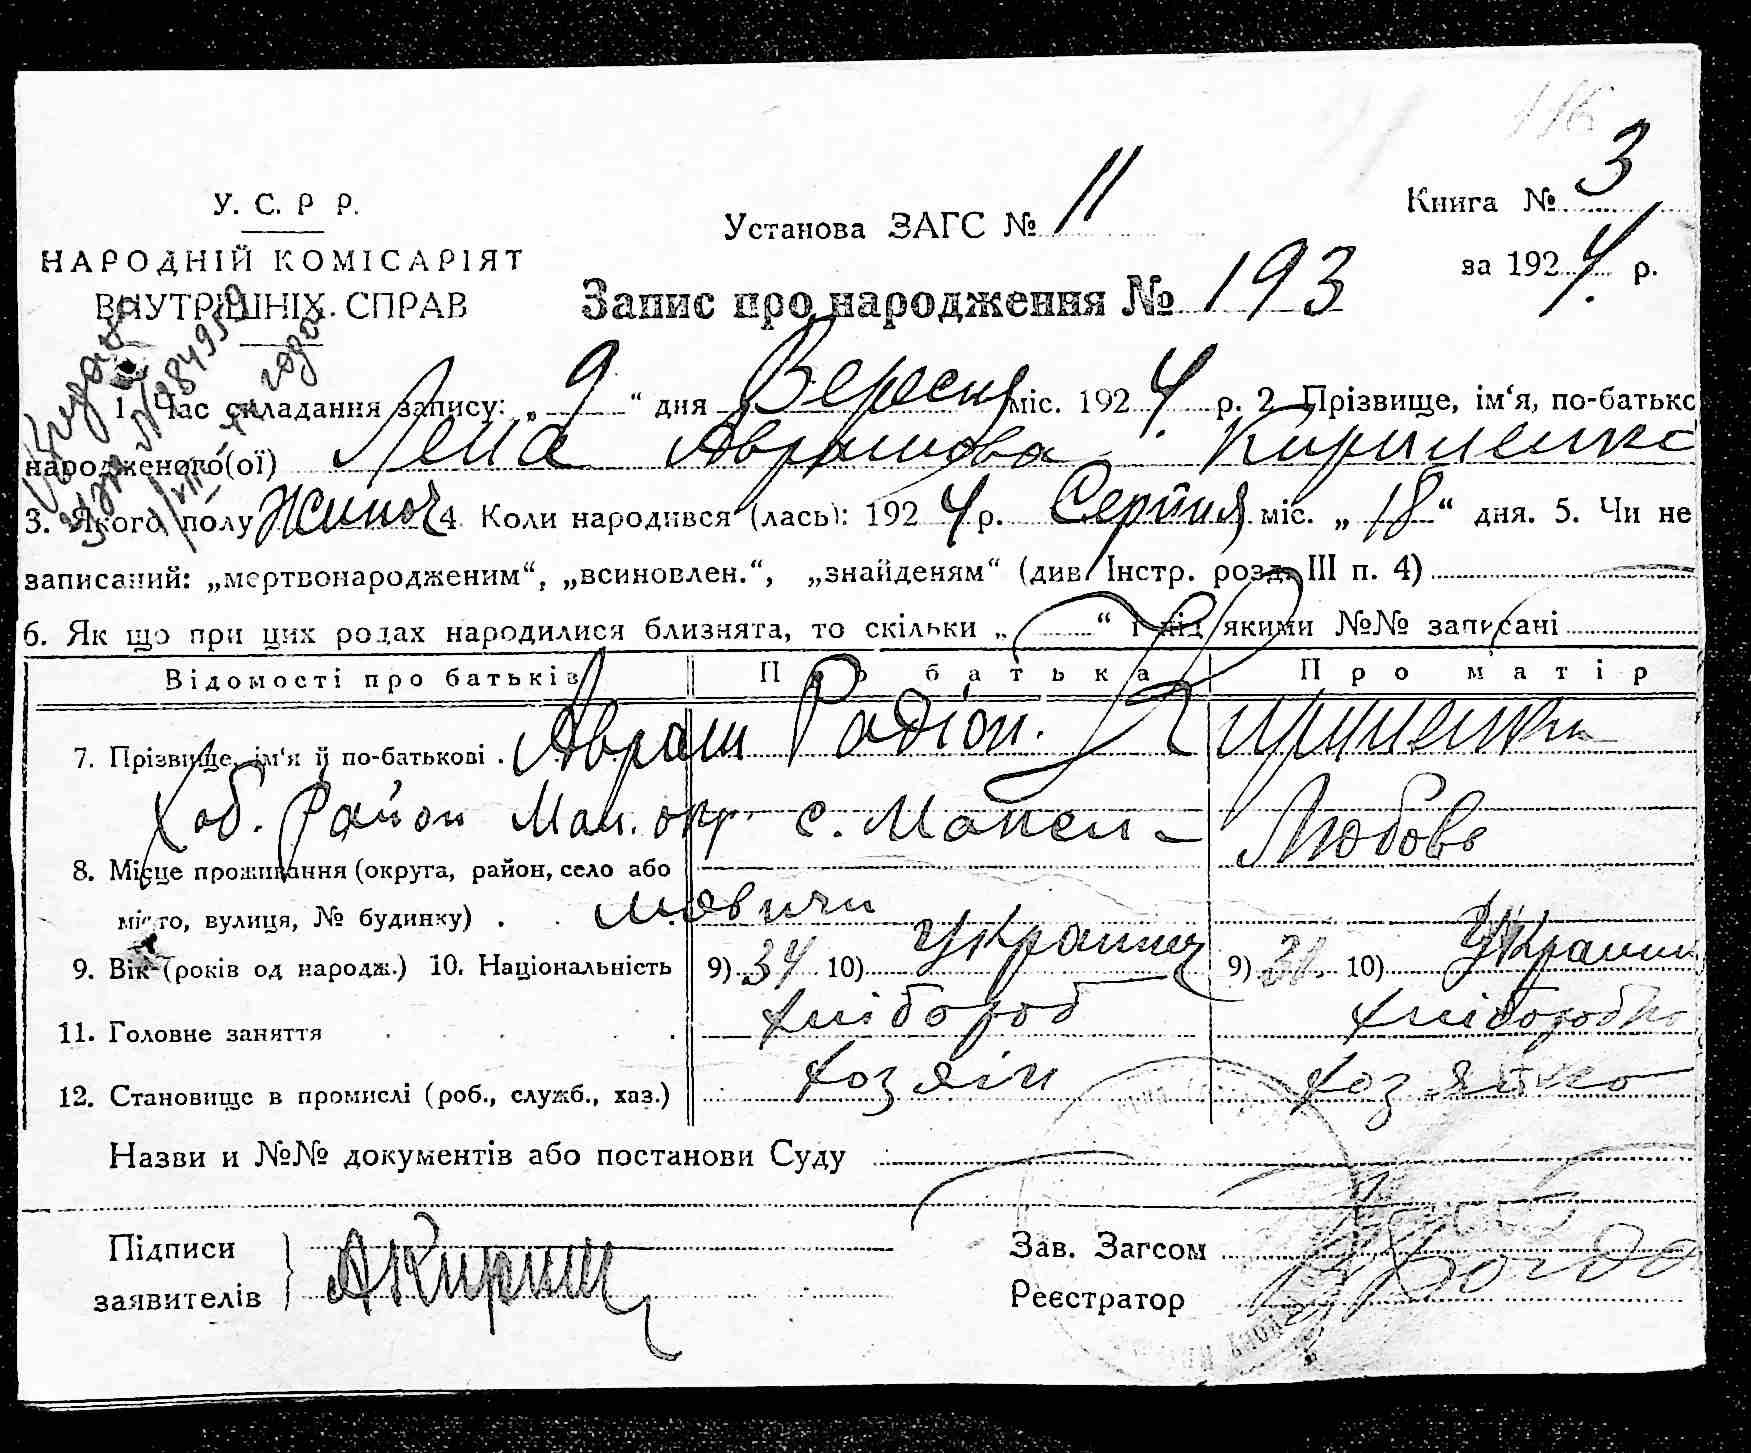 116
У. С. Р Р.
Установа ЗАГС № 11
Книга № 3
НАРОДНІЙ КОМІСАРІЯТ
ВНУТРІШНІХ СПРАВ
за 1924 р.
Запис про народження № 193
1. Час складання запису: „ 9 “ дня Вересня міс. 1924 р. 2 Прізвище, ім‘я, по-батько
народженого(ої) Лена Аврамова Кириленко
3. Якого полу Жиноч 4 Коли народився (лась): 1924 р. Серпня міс. „ 18 “ дня. 5. Чи не
записаний: „мертвонародженим“, „всиновлен.“, „знайденям“ (див. Інстр. розд. III п. 4)
6. Як що при цих родах народилися близнята, то скільки „ “ і під якими №№ записані
Відомості про батьків Про батька Про матір
7. Прізвище, ім‘я й по-батькові . Аврам Радіон. Кириленко
Хаб. район Мал. окр. с. Любовь
8. Місце проживання (округа, район, село або
місто, вулиця, № будинку)
9. Вік (років од народж.) 10. Національність 9) 34 10) Украинец 9) 10) Украин
11. Головне заняття хлібороб хліборобка
12. Становище в промислі (роб., служб., хаз.) хозяін хозяйка
Назви и №№ документів або постанови Суду
Підписи
заявителів
Зав. Загсом
Реєстратор